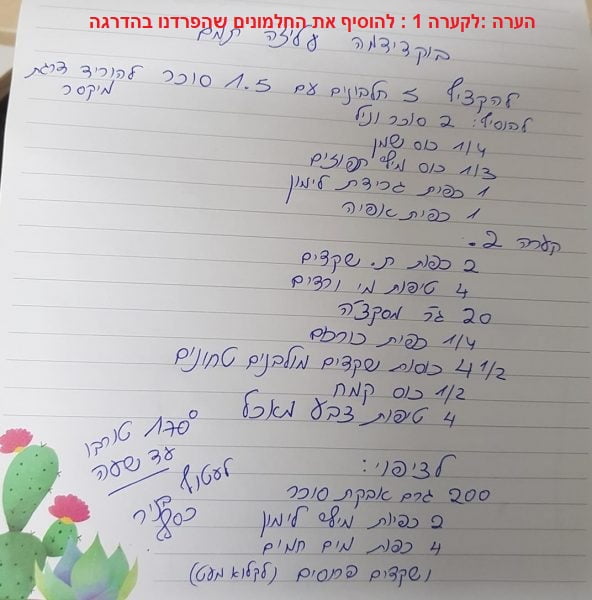 הערה :לקערה 1 : להוסיף את החלמונים שהפרדנו בהדרגה
בוקדידמה עליזה תמם
להקציף 5 חלבונים עם 1.5 סוכר להוריד דרגת מיקסר
להוסיף: 2 סוכר וניל
1/4 כוס שמן
1/3 כוס מיץ תפוזים
1 כפית גרידת לימון
1 כפית אפיה
קערה 2.
2 כפות ת. שקדים
4 טיפות מי ורדים
20 גר' מסקצ'ה
1/4 כפית כורכום
4 1/2 כוסות שקדים מולבנים טחונים
1/2 כוס קמח
4 טיפות צבע מאכל
170° טורבו
עד שעה
לעטוף
בנייר
כסף
לציפוי:
200 גרם אבקת סוכר
2 כפיות מיץ לימון
4 כפות מים חמים
ושקדים פרוסים (לקלוא מעט)